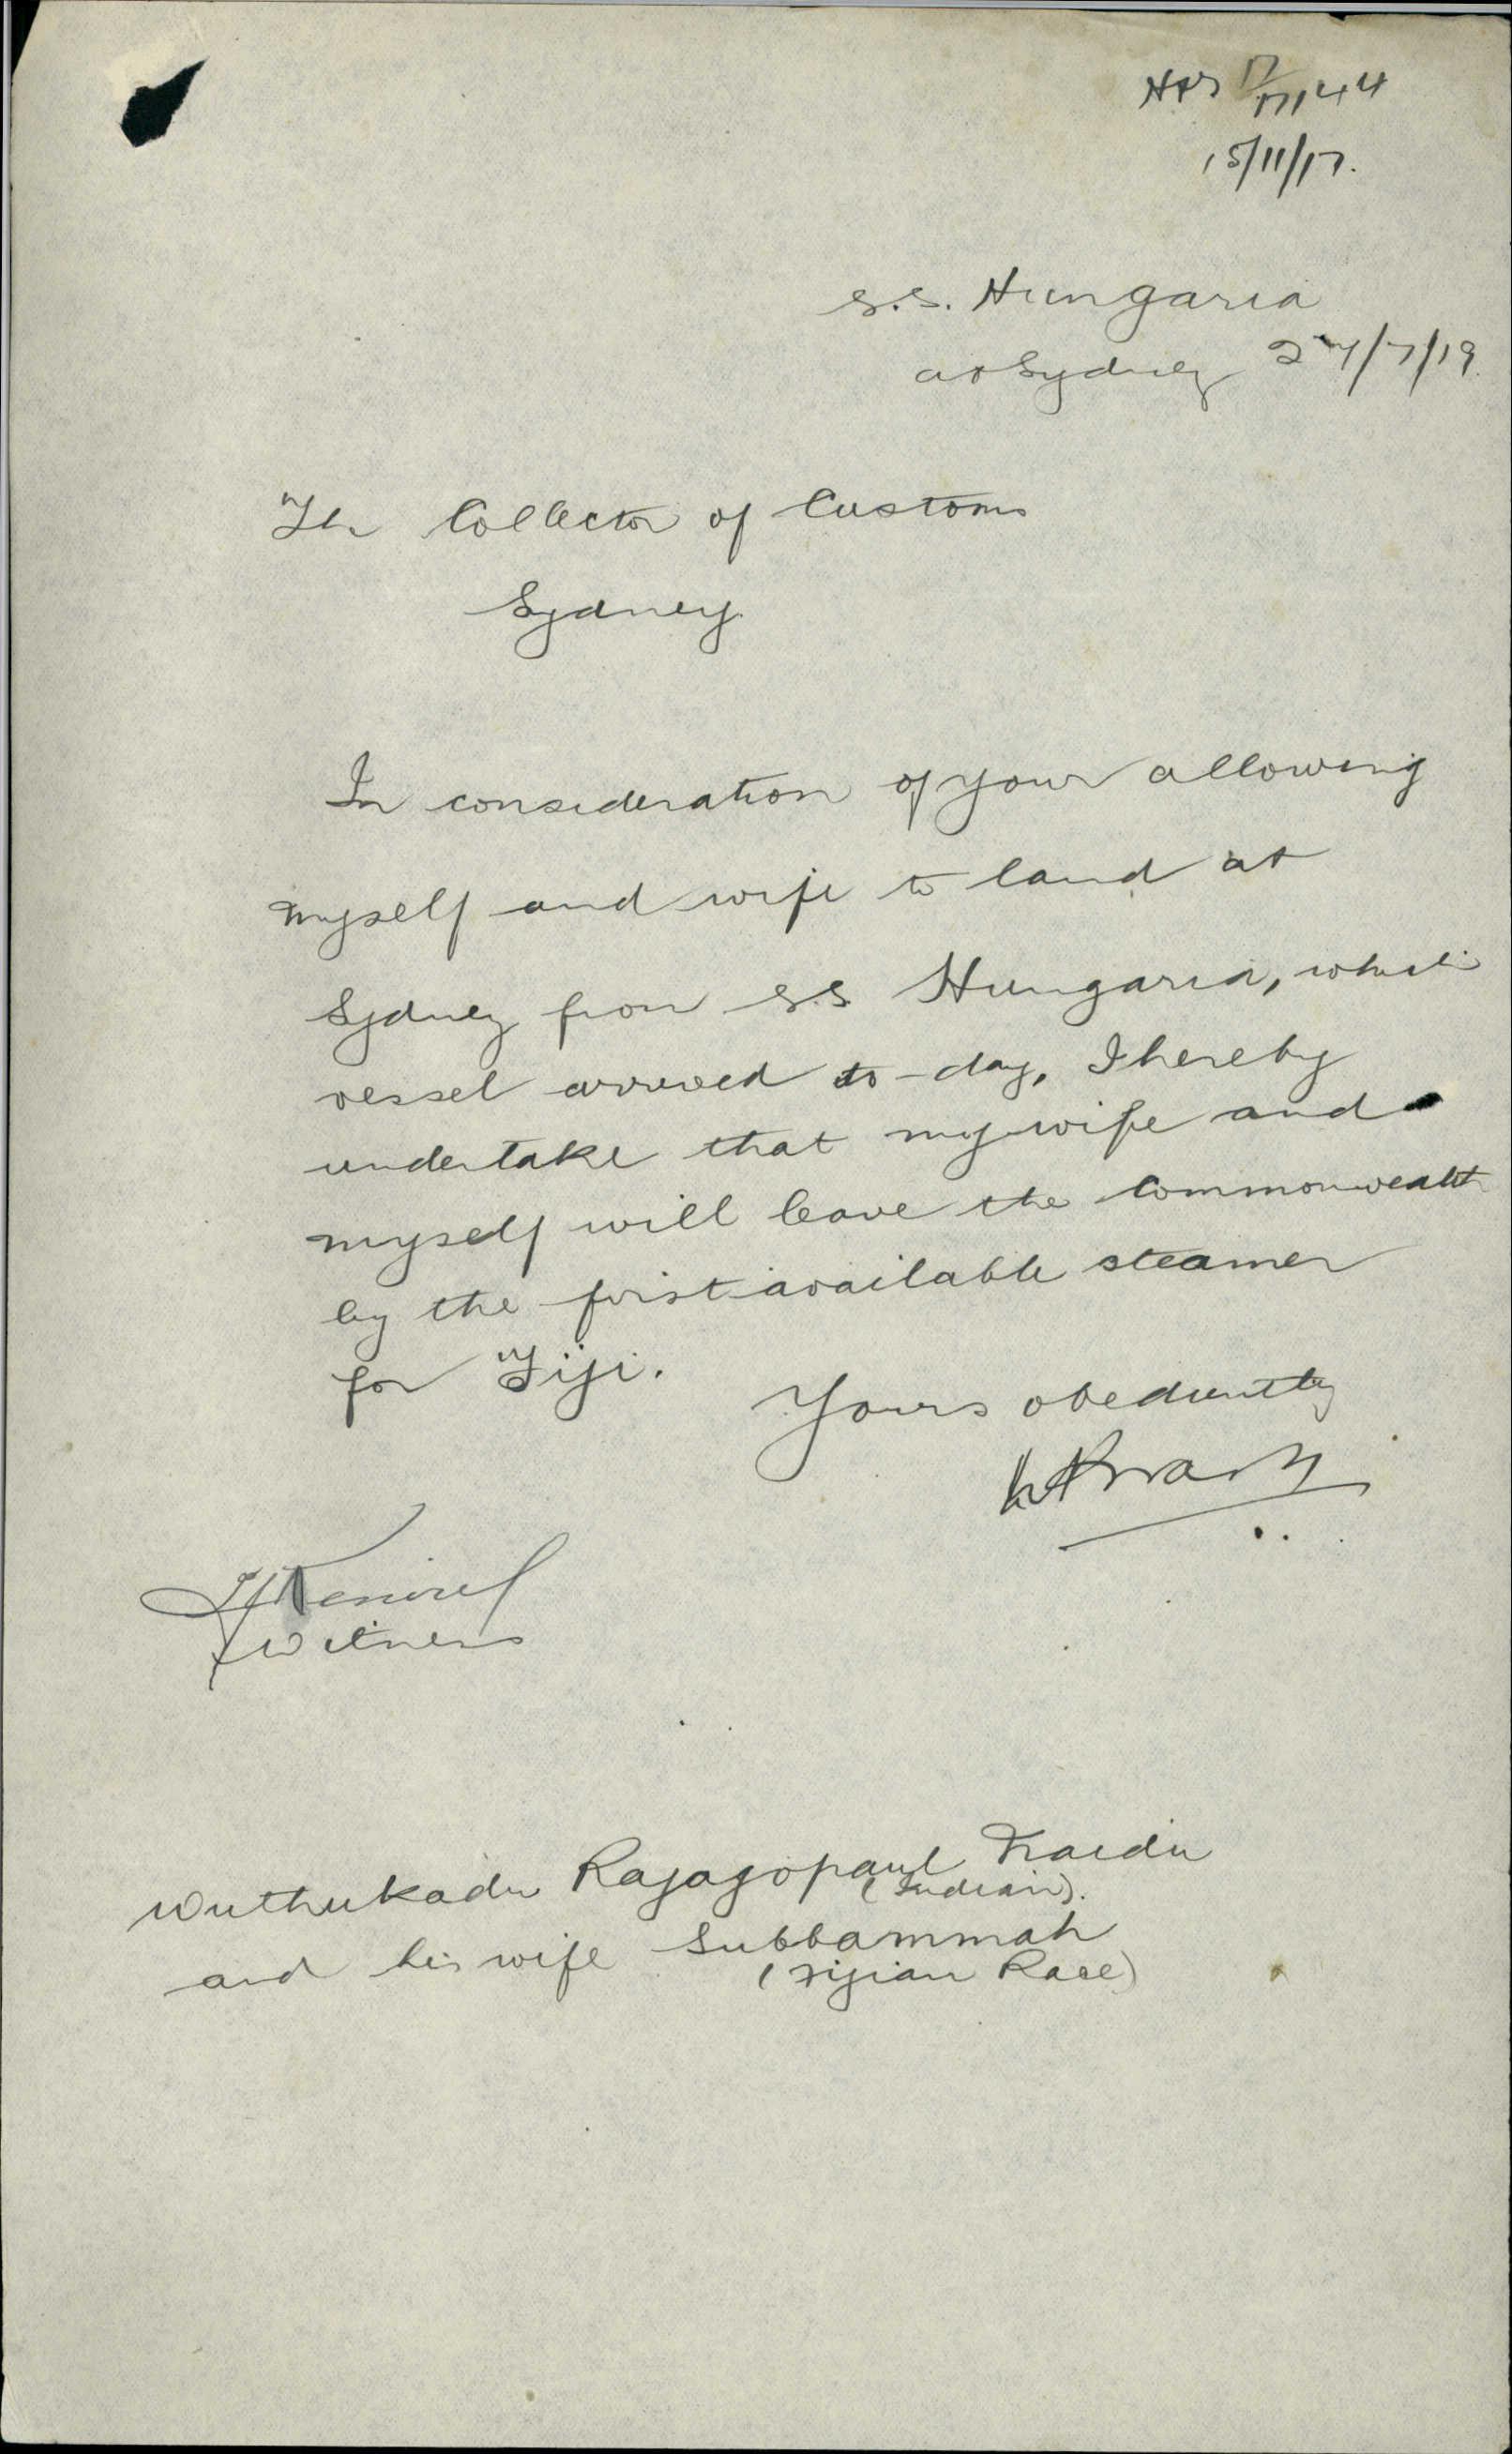 15/11/17.
S.S. Hungaria
at Sydney 27/7/19.
The Collector of Customs
Sydney.
In consideration of your allowing
myself and wife to land at
Sydney from S.S Hungaria, which
vessel arrived to-day, I hereby
undertake that my wife and
myself will leave the Commonwealth
by the first available steamer
for Fiji.
Yours obediently
Witness
Wuthukadu Rajagopaul Naidu
(Indian).
and his wife Subbammah
(Fijian Race)